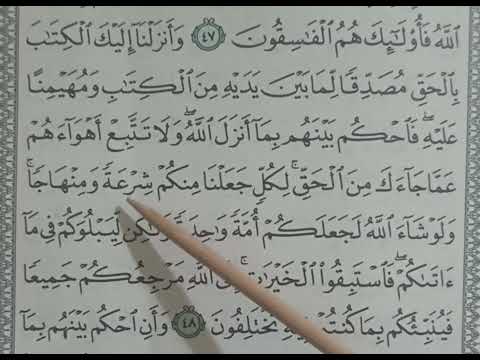 ٱللَّهُ فَأُو۟لَـٰٓئِكَ هُمُ ٱلْفَـٰسِقُونَ ٤٧ وَأَنزَلْنَآ إِلَيْكَ ٱلْكِتَـٰبَ
بِٱلْحَقِّ مُصَدِّقًا لِّمَا بَيْنَ يَدَيْهِ مِنَ ٱلْكِتَـٰبِ وَمُهَيْمِنًا
عَلَيْهِ ۖ فَٱحْكُم بَيْنَهُم بِمَآ أَنزَلَ ٱللَّهُ ۖ وَلَا تَتَّبِعْ أَهْوَآءَهُمْ
عَمَّا جَآءَكَ مِنَ ٱلْحَقِّ ۚ لِكُلٍّ جَعَلْنَا مِنكُمْ شِرْعَةً وَمِنْهَاجًا ۚ
وَلَوْ شَآءَ ٱللَّهُ لَجَعَلَكُمْ أُمَّةً وَٰحِدَةً وَلَـٰكِن لِّيَبْلُوَكُمْ فِى مَآ
ءَاتَىٰكُمْ ۖ فَٱسْتَبِقُوا۟ ٱلْخَيْرَٰتِ ۚ ٱللَّهِ مَرْجِعُكُمْ جَمِيعًا
فَيُنَبِّئُكُم بِمَا كُنتُمْ فِيهِ تَخْتَلِفُونَ ٤٨ وَأَنِ ٱحْكُم بَيْنَهُم بِمَآ